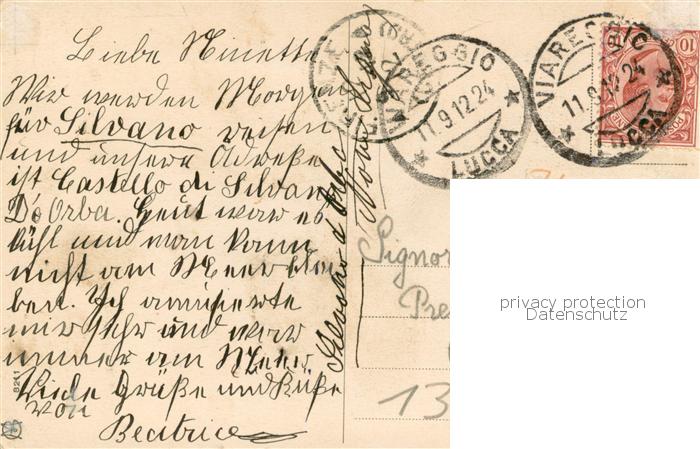 Liebe Ninette
Wir werden Morgen
für Silvano reisen
und unsere Adreße
ist Castello di Silvano
D'Orba. Heut war es
kühl und man kann
nicht am Meer blei
ben. Ich amüsierte
mir sehr und war
immer am Meer.
Viele Grüße und Küße
von
Beatrice
Silvano d'Orba
VIAREGGIO
11.9.12.24
LUCCA
VIAREGGIO
11.9.12.24
LUCCA
10
Signor
Pre
13
8211
privacy protection
Datenschutz